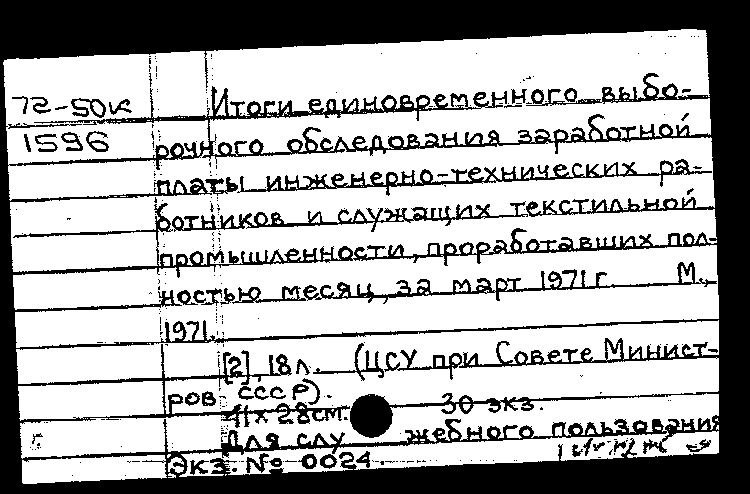 72-50к Итоги единовременного выбо-
1596 рочного обследования заработной
платы инженерно-технических ра-
ботников и служащих текстильной
промышленности, проработавших пол-
ностью месяц, за март 1971 г. М.,
1971.
[2], 18 л. (ЦСУ при Совете Минист-
ров СССР).
41х28см. 30 экз.
Для служебного пользования
Экз. № 0024.